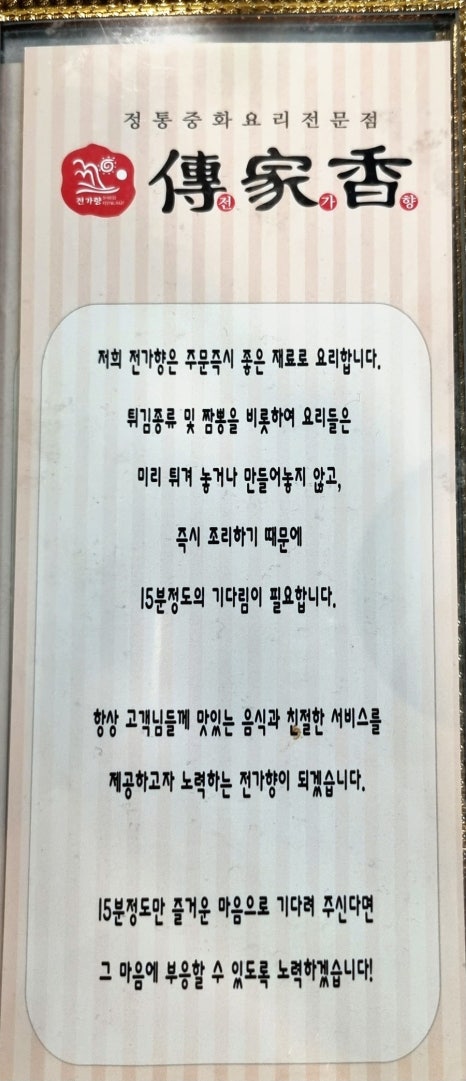 정통중화요리전문점
傳家香
전 가 향
전가향
저희 전가향은 주문즉시 좋은 재료로 요리합니다.
튀김종류 및 짬뽕을 비롯하여 요리들은
미리 튀겨 놓거나 만들어놓지 않고,
즉시 조리하기 때문에
15분정도의 기다림이 필요합니다.
항상 고객님들께 맛있는 음식과 친절한 서비스를
제공하고자 노력하는 전가향이 되겠습니다.
15분정도만 즐거운 마음으로 기다려 주신다면
그 마음에 부응할 수 있도록 노력하겠습니다!